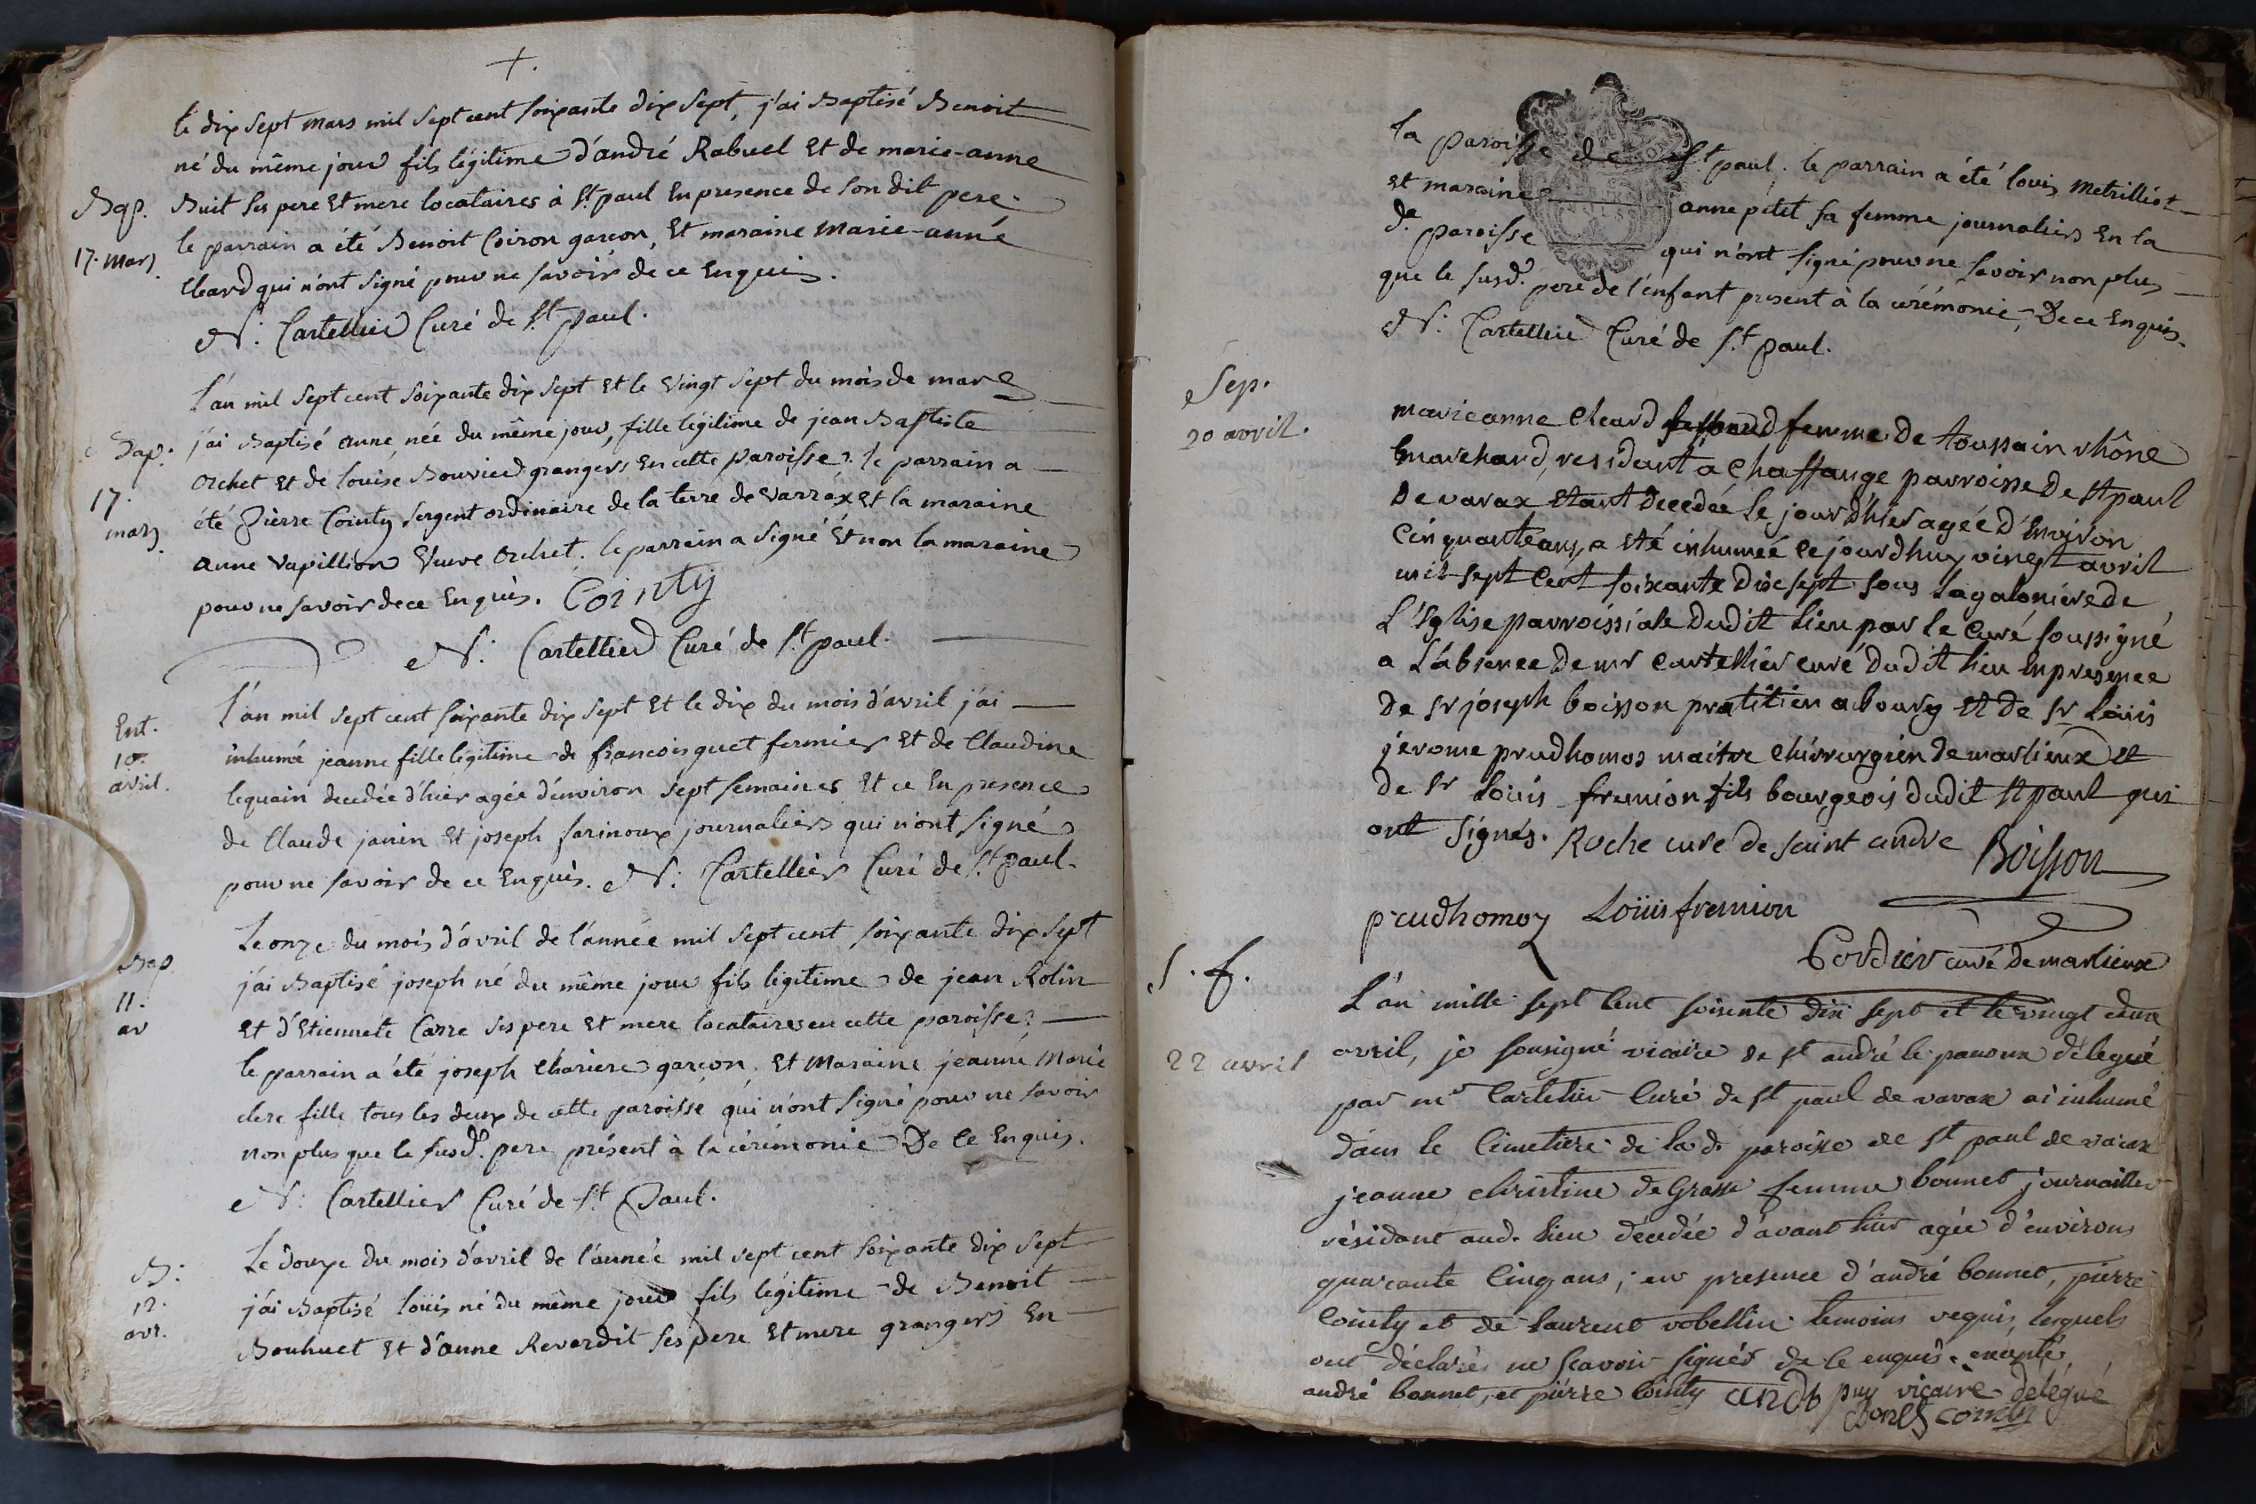 +.
le dix sept mars mil sept cent soixante dix sept, j'ai Baptisé Benoit
né du même jour fils légitime d'andré Rabuel et de marie-anne
Bap. Buit ses pere et mere locataires à St. paul En presence de son dit pere.
17. mars le parrain a été Benoit Coiron garçon, Et maraine Marie-anne
Cleard qui n'ont signé pour ne savoir de ce Enquis.
N: Cartellier Curé de St. paul.
L'an mil sept cent soixante dix sept et le vingt sept du mois de mars
Bap. j'ai Baptisé anne, née du même jour, fille légitime de jean Baptiste
17. ochet et de louise Bouvier grangers En cette paroisse. le parrain a
mars été Pierre Cointy sergent ordinaire de la terre de varrax et la maraine
anne vapillion veuve ochet. le parrain a signé Et non la maraine
pour ne savoir de ce Enquis. Cointy
N: Cartellier Curé de St. paul.
Ent. L'an mil sept cent soixante dix sept et le dix du mois d'avril j'ai
10. inhumé jeanne fille légitime de francois guet fermier et de Claudine
avril. lequain decedée d'hier agée d'environ sept semaines Et ce En presence
de Claude janin et joseph farinoux journaliers qui n'ont signé
pour ne savoir de ce Enquis. N: Cartellier Curé de St. paul.
Le onze du mois d'avril de l'année mil sept cent soixante dix sept
Bap j'ai Baptisé joseph né du même jour fils légitime de jean Rolin
11. et d'Etiennete Carre ses pere et mere locataires en cette paroisse.
av le parrain a été joseph chariere garçon, et Maraine jeanne Marie
clere fille tous les deux de cette paroisse qui n'ont signé pour ne savoir
non plus que le susd. pere présent à la cérémonie De ce Enquis.
N: Cartellier Curé de St. Paul.
B: Le douze du mois d'avril de l'année mil sept cent soixante dix sept
12. j'ai Baptisé loüis né du même jour fils légitime de Benoit
avr. Bouhuet et d'anne Reverdit ses pere et mere grangers En
la paroisse de St. paul. le parrain a été louis Metrilliot
et maraine anne petit sa femme journaliers En la
de. paroisse qui n'ont signé pour ne savoir non plus
que le susd. pere de l'enfant present à la cérémonie, De ce Enquis.
N: Cartellier Curé de St. paul.
Sep. marie anne Cleard femme de toussain rhône
20 avril. marchand, residant a Chaffange parroisse De st paul
De varax Etant Decedée le jour d'hier agée d'Environ
Cinquante ans, a Eté inhumée ce jourdhuy vingt avril
mil sept Cent soixante Dix sept sous la galonière de
L'Eglise parroissiale Dudit lieu par le Curé soussigné
a L'absence de mr Cartellier curé dudit lieu En presence
De sr joseph boisson pratitien a bourg et De sr loüis
jerome prudhomos maitre Chirurgien de marlieux et
de sr Loüis fremion fils bourgeois dudit st paul qui
ont signés. Roche curé de saint andre Boisson
prudhomoz Loüis fremion
Cordier curé de marlieux
S. f. L'an mille sept Cent soisente dix sept et le vingt deux
22 avril avril, je sousigné vicaire de st andré le panoux délegué
par mr Cartelier Curé de st paul de varax ai inhumé
dans le Cimetiere de lad. paroisse de st paul de varax
jeanne christine de Grasse femme bonnet journailler
résidant aud. lieu décedée d'avant hier agée d'environs
quarante Cinq ans; en presence d'andré bonnet, pierre
Cointy et de laurent vobellin temoins requis, lesquels
ont déclarés ne scavoir signés de ce enquis. excepté
andré bonnet, et pierre Cointy puy vicaire délégué
Cointy